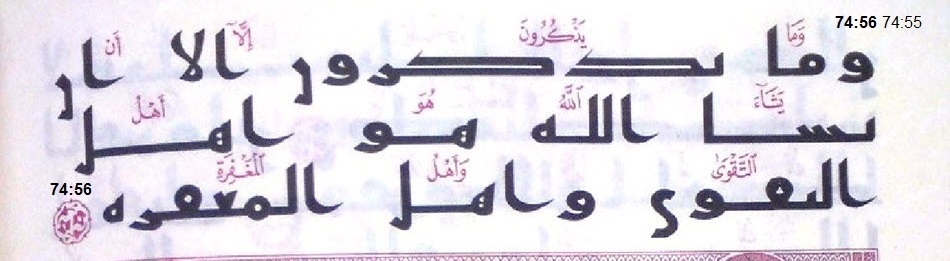 74:56 74:55
وَمَا يَذْكُرُونَ إِلَّآ أَن
وما يذكرون الا ان
يَشَآءَ اللَّهُ هُوَ أَهْلُ
يشا الله هو اهل
التَّقْوَىٰ وَأَهْلُ الْمَغْفِرَةِ
التقوى واهل المغفره
74:56